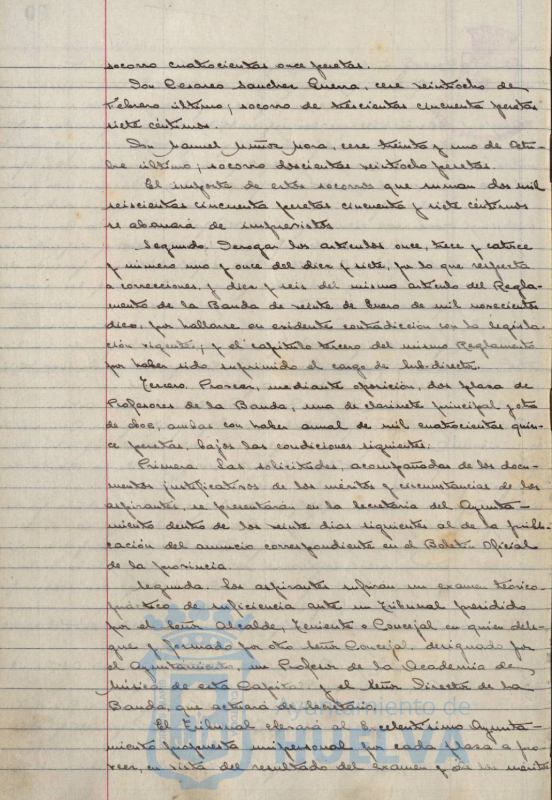 socorro cuatrocientas once pesetas.
Don Cesareo Sanchez Guerra, cese veintiocho de
Febrero último; socorro de trescientas cincuenta pesetas
siete céntimos.
Don Manuel Muñoz Mora, cese treinta y uno de Octu-
bre último; socorro doscientas veintiocho pesetas.
El importe de estos socorros que suman dos mil
seiscientas cincuenta pesetas cincuenta y siete céntimos
se abonará de imprevistos.
Segundo. Derogar los artículos once, trece y catorce
y número uno y once del diez y siete, por lo que respecta
a correcciones, y diez y seis del mismo artículo del Regla-
mento de la Banda de veinte de Enero de mil novecientos
doce, por hallarse en evidente contradicción con la legisla-
ción vigente; y el capítulo tercero del mismo Reglamento
por haber sido suprimido el cargo de Sub-director.
Tercero. Proveer, mediante oposición, dos plaza de
Profesores de la Banda, una de clarinete principal y otra
de oboe, ambas con haber anual de mil cuatrocientas quin-
ce pesetas, bajo las condiciones siguientes:
Primera. Las solicitudes, acompañadas de los docu-
mentos justificativos de los méritos y circunstancias de los
aspirantes, se presentarán en la Secretaría del Ayunta-
miento dentro de los veinte días siguientes al de la publi-
cación del anuncio correspondiente en el Boletín Oficial
de la provincia.
Segunda. Los aspirantes sufrirán un examen teórico-
práctico de suficiencia ante un Tribunal presidido
por el Señor Alcalde, Teniente o Concejal en quien dele-
gue y formado por otro Señor Concejal designado por
el Ayuntamiento, un Profesor de la Academia de
Música de esta Capital y el Señor Director de la
Banda, que actuará de Secretario.
El Tribunal elevará al Excelentísimo Ayunta-
miento propuesta unipersonal por cada plaza a pro-
veer, en vista del resultado del examen y de los méritos
Ayuntamiento de
HUELVA